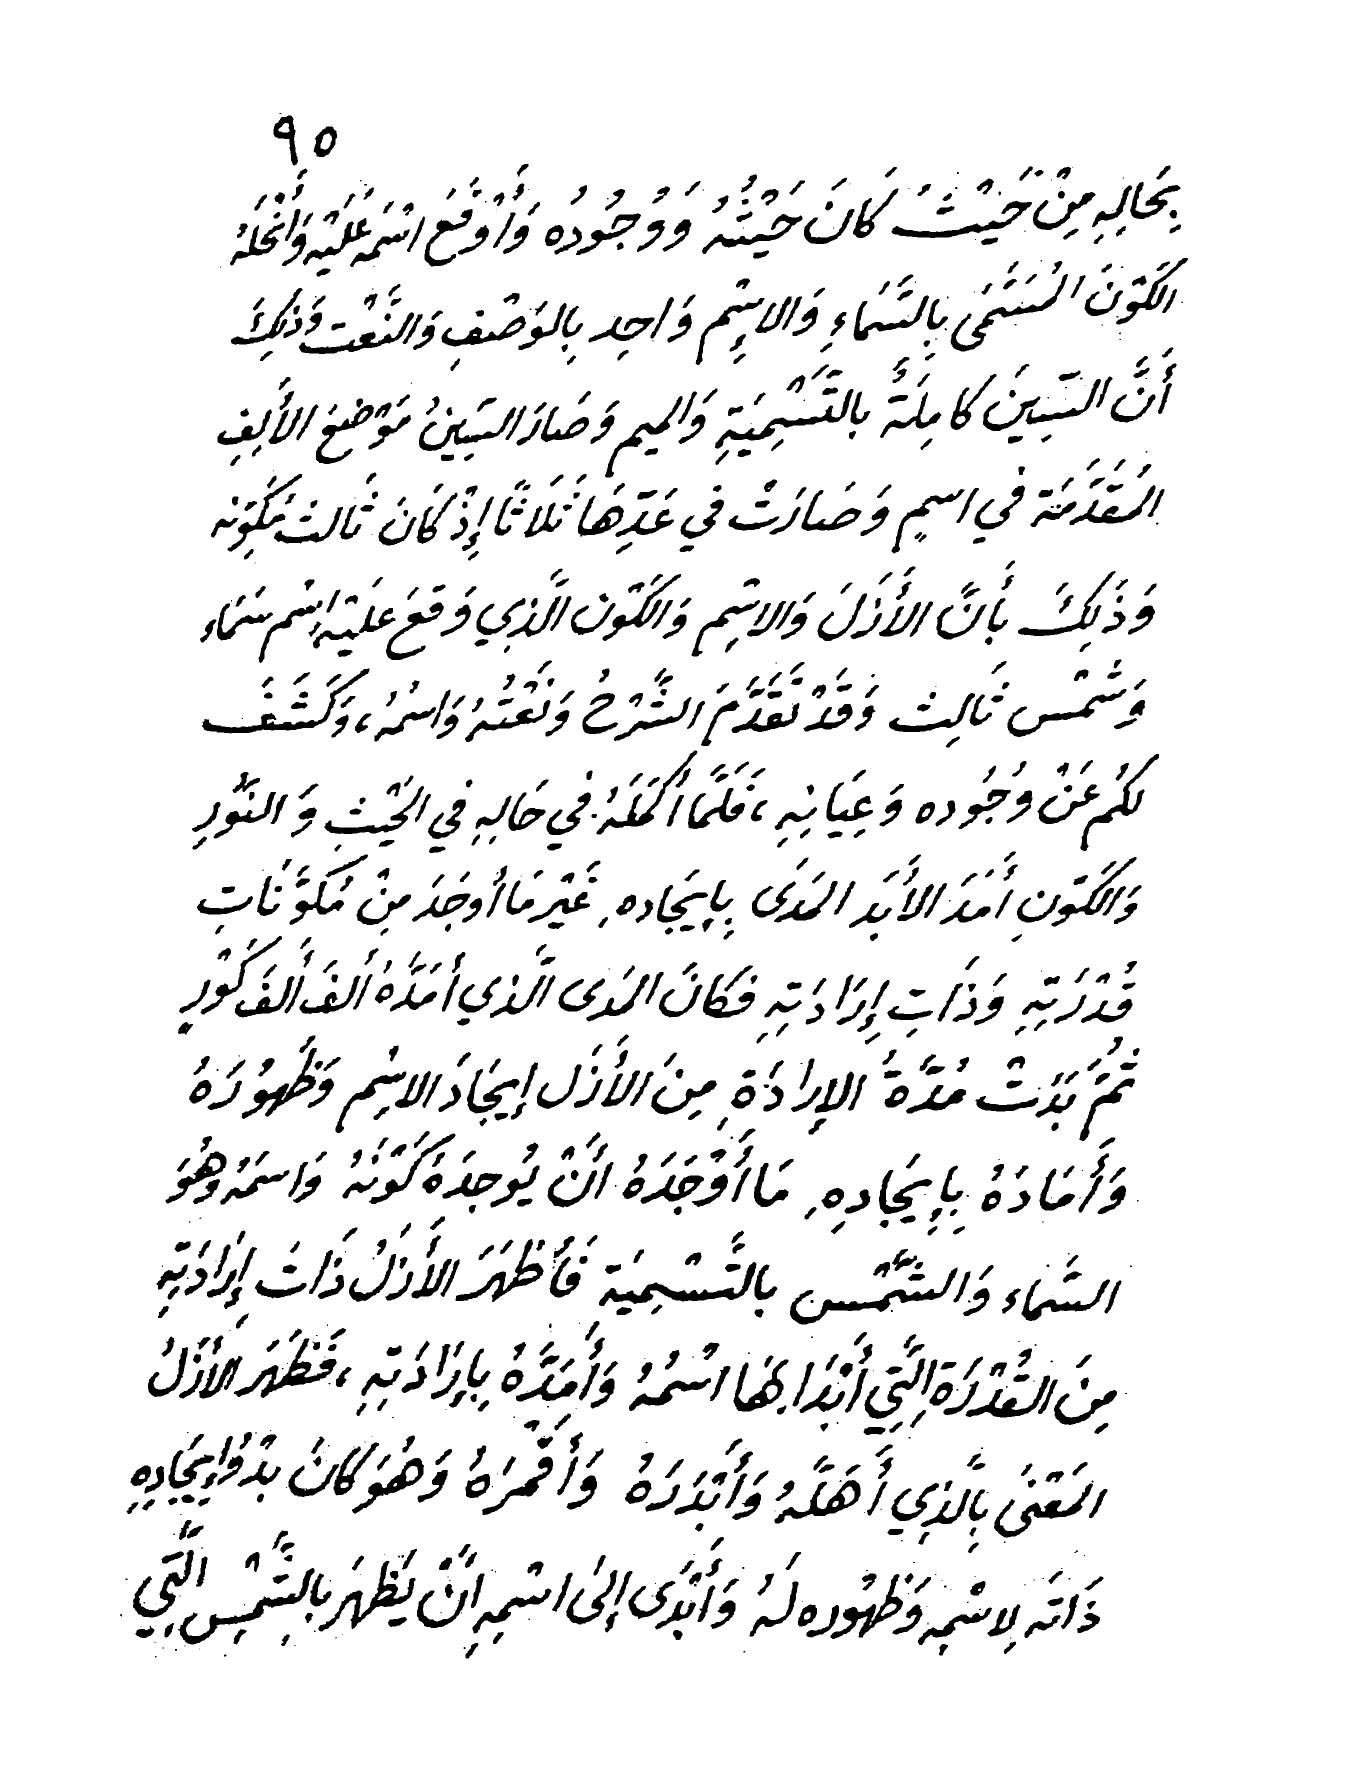 ٩٥
بِحَالِهِ مِنْ حَيْثُ كَانَ حَيْثُهُ وَوُجُودُه وَأَوْقَعَ اسْمَهُ عَلَيْهِ وَأَنْحَلَهُ
الكَوْنَ المُسَمَّى بِالسَّمَاءِ وَالاِسْم وَاحِد بِالوَصْفِ وَالنَّعْت وَذَلِكَ
أَنَّ السِّينَ كَامِلَةٌ بالتَّسْمِيَةِ وَالميم وَصَارَ السِّينُ مَوْضِعَ الأَلِفِ
المُقَدَّمَة في اسمٍ وَصَارَتْ في عَدِّهَا ثَلَاثًا إِذْ كَانَ ثَالثَ مُكَوِّنه
وَذَلِكَ بأَنَّ الأَزَلَ وَالاِسْم وَالكَوْن الَّذِي وَقَعَ عَلَيْهِ إسْم سَمَاء
وَشَمْس ثَالِث وَقَدْ تَقَدَّمَ الشَّرْحُ وَنَعْتُهُ وَاسمُهُ، وَكَشَفَ
لكُم عَنْ وُجُوده وَعِيَانِهِ، فَلَمَّا أكْمَلَهُ في حَالِهِ في الحَيْثِ وَالنُّورِ
وَالكَوْنِ أَمَدَ الأَبَد المَدَى بِإِيجَادِه غَيْرَ مَا أوجَدَ مِنْ مُكَوَّنَاتِ
قُدْرَتِهِ وَذَاتِ إِرَادَتِهِ فكَانَ المَدى الَّذي أَمَدَّهُ أَلفَ أَلفَ كَوْرٍ
ثُمَّ بَدَتْ مُدَّةُ الإِرادَةِ مِنَ الأَزَل إِيجَادَ الاِسْم وَظُهُورَهُ
وَأَمَادَهُ بِإِيجَادِهِ مَا أَوْجَدَهُ أَنْ يُوجِدَهُ كَوْنَهُ وَاسمَهُ وَهُوَ
السَّماء وَالشَّمْس بالتَّسْمِيَة فَأَظْهَرَ الأَزَلُ ذَاتَ إِرَادَتِهِ
مِنَ القُدْرَة الَّتِي أَبْدَا بهَا اسْمُهُ وَأَمَدَّهُ بِإِرَادَتِهِ، فَظَهَرَ الأَزَلُ
المَعْنَى بِالَّذِي أَهَلَّهُ وَأَبْدَرَهُ وَأَقْمَرَهُ وَهُوَ كَانَ بدْوُ إِيجَادِهِ
ذَاتَه لاِسْمِه وَظُهُوره لَهُ وَأَبْدَى إِلىَ اسْمِهِ أنْ يَظْهَرَ بالشَّمْسِ الَّتِي